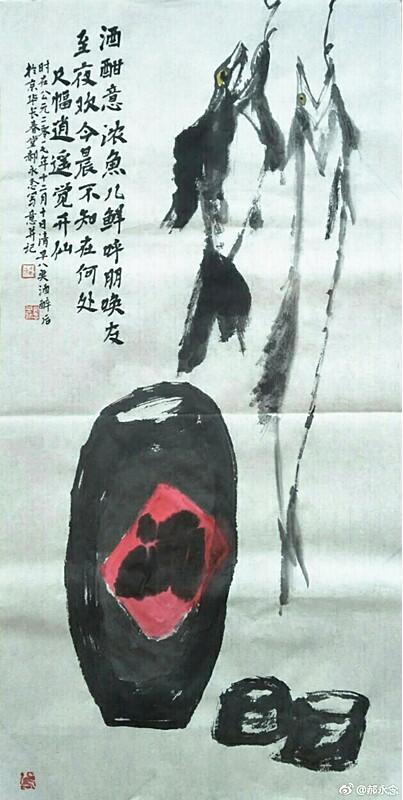 酒酣意浓魚儿鲜呼朋唤友
至夜欢今晨不知在何处
尺幅逍遥觉升仙
时在公元二零一九年十二月十日清早八奌酒醉后
於京华长春堂郝永念写意并记
@郝永念